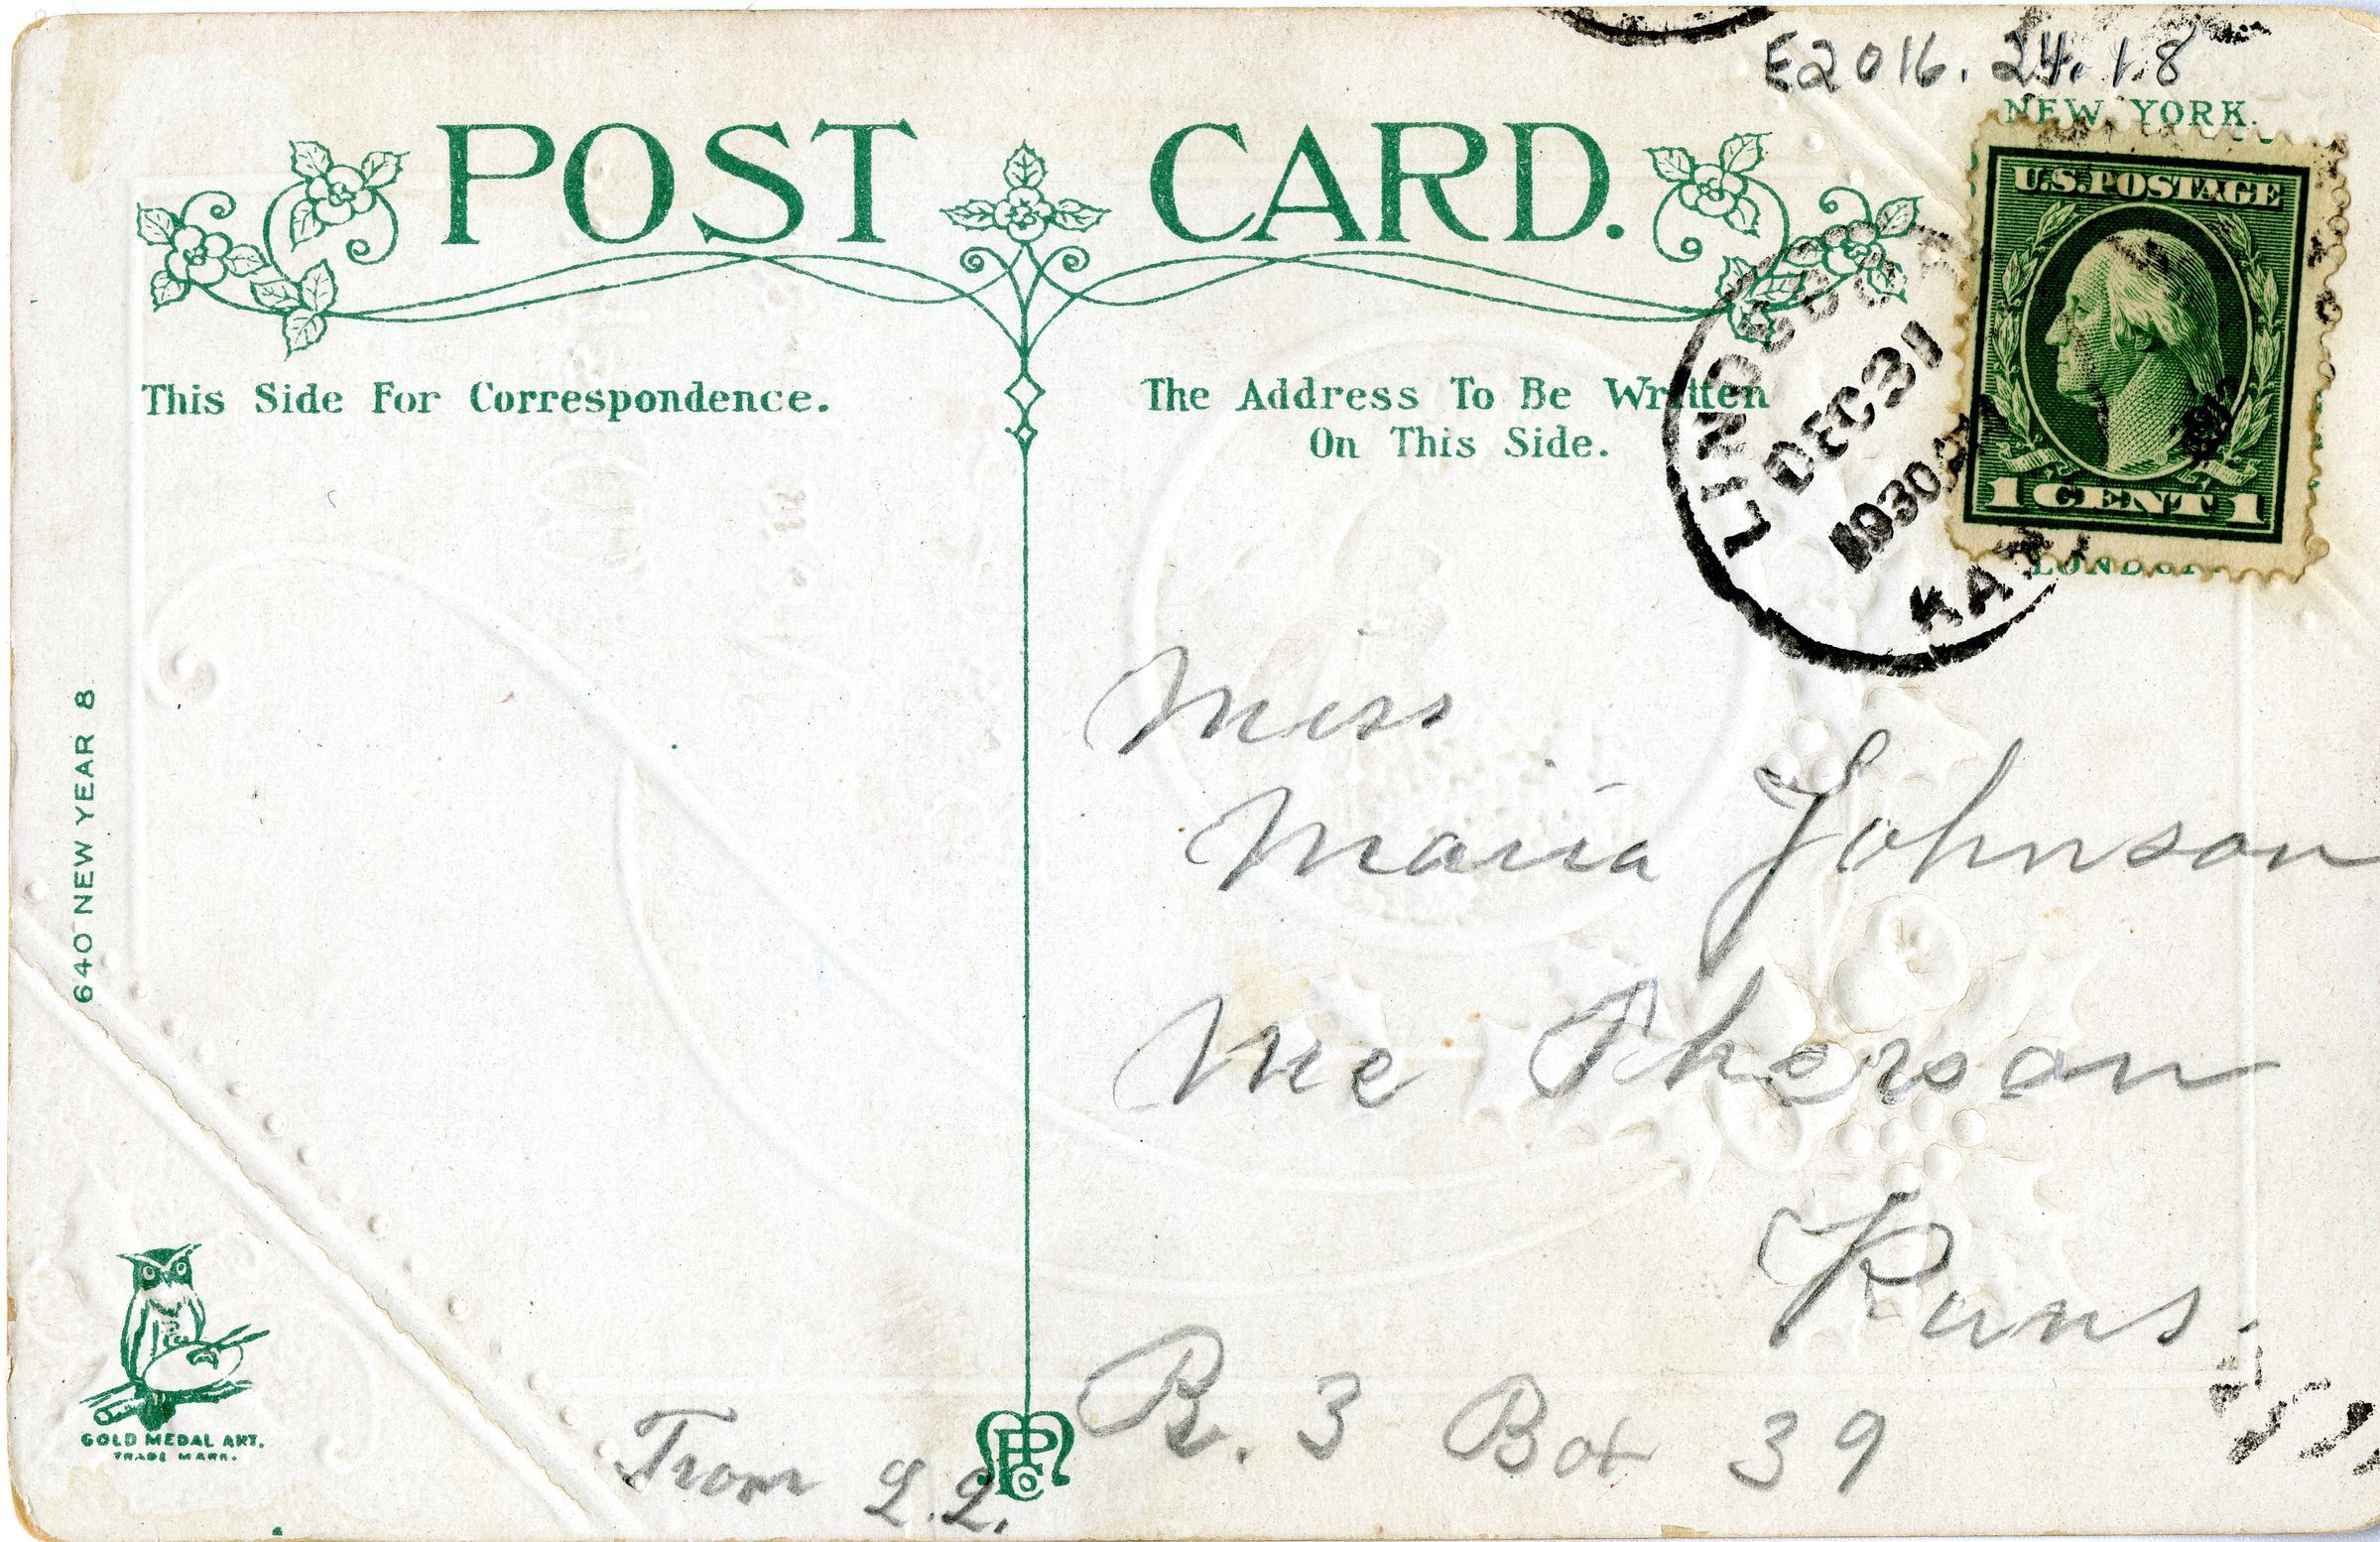 E2016.24.18
POST CARD.
NEW YORK.
U.S. POSTAGE
1 CENT 1
LINDSBORG
DEC 31
1030A
KAN
This Side For Correspondence.
The Address To Be Written
On This Side.
Miss
Maria Johnson
Mc Pherson
Kans.
R. 3 Box 39
From L.L.
640 NEW YEAR 8.
GOLD MEDAL ART.
TRADE MARK.